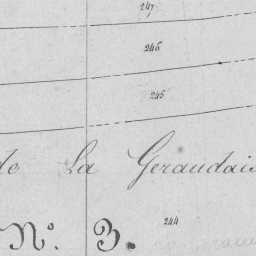 247
246
245
de La Geraudais
244
N°. 3.